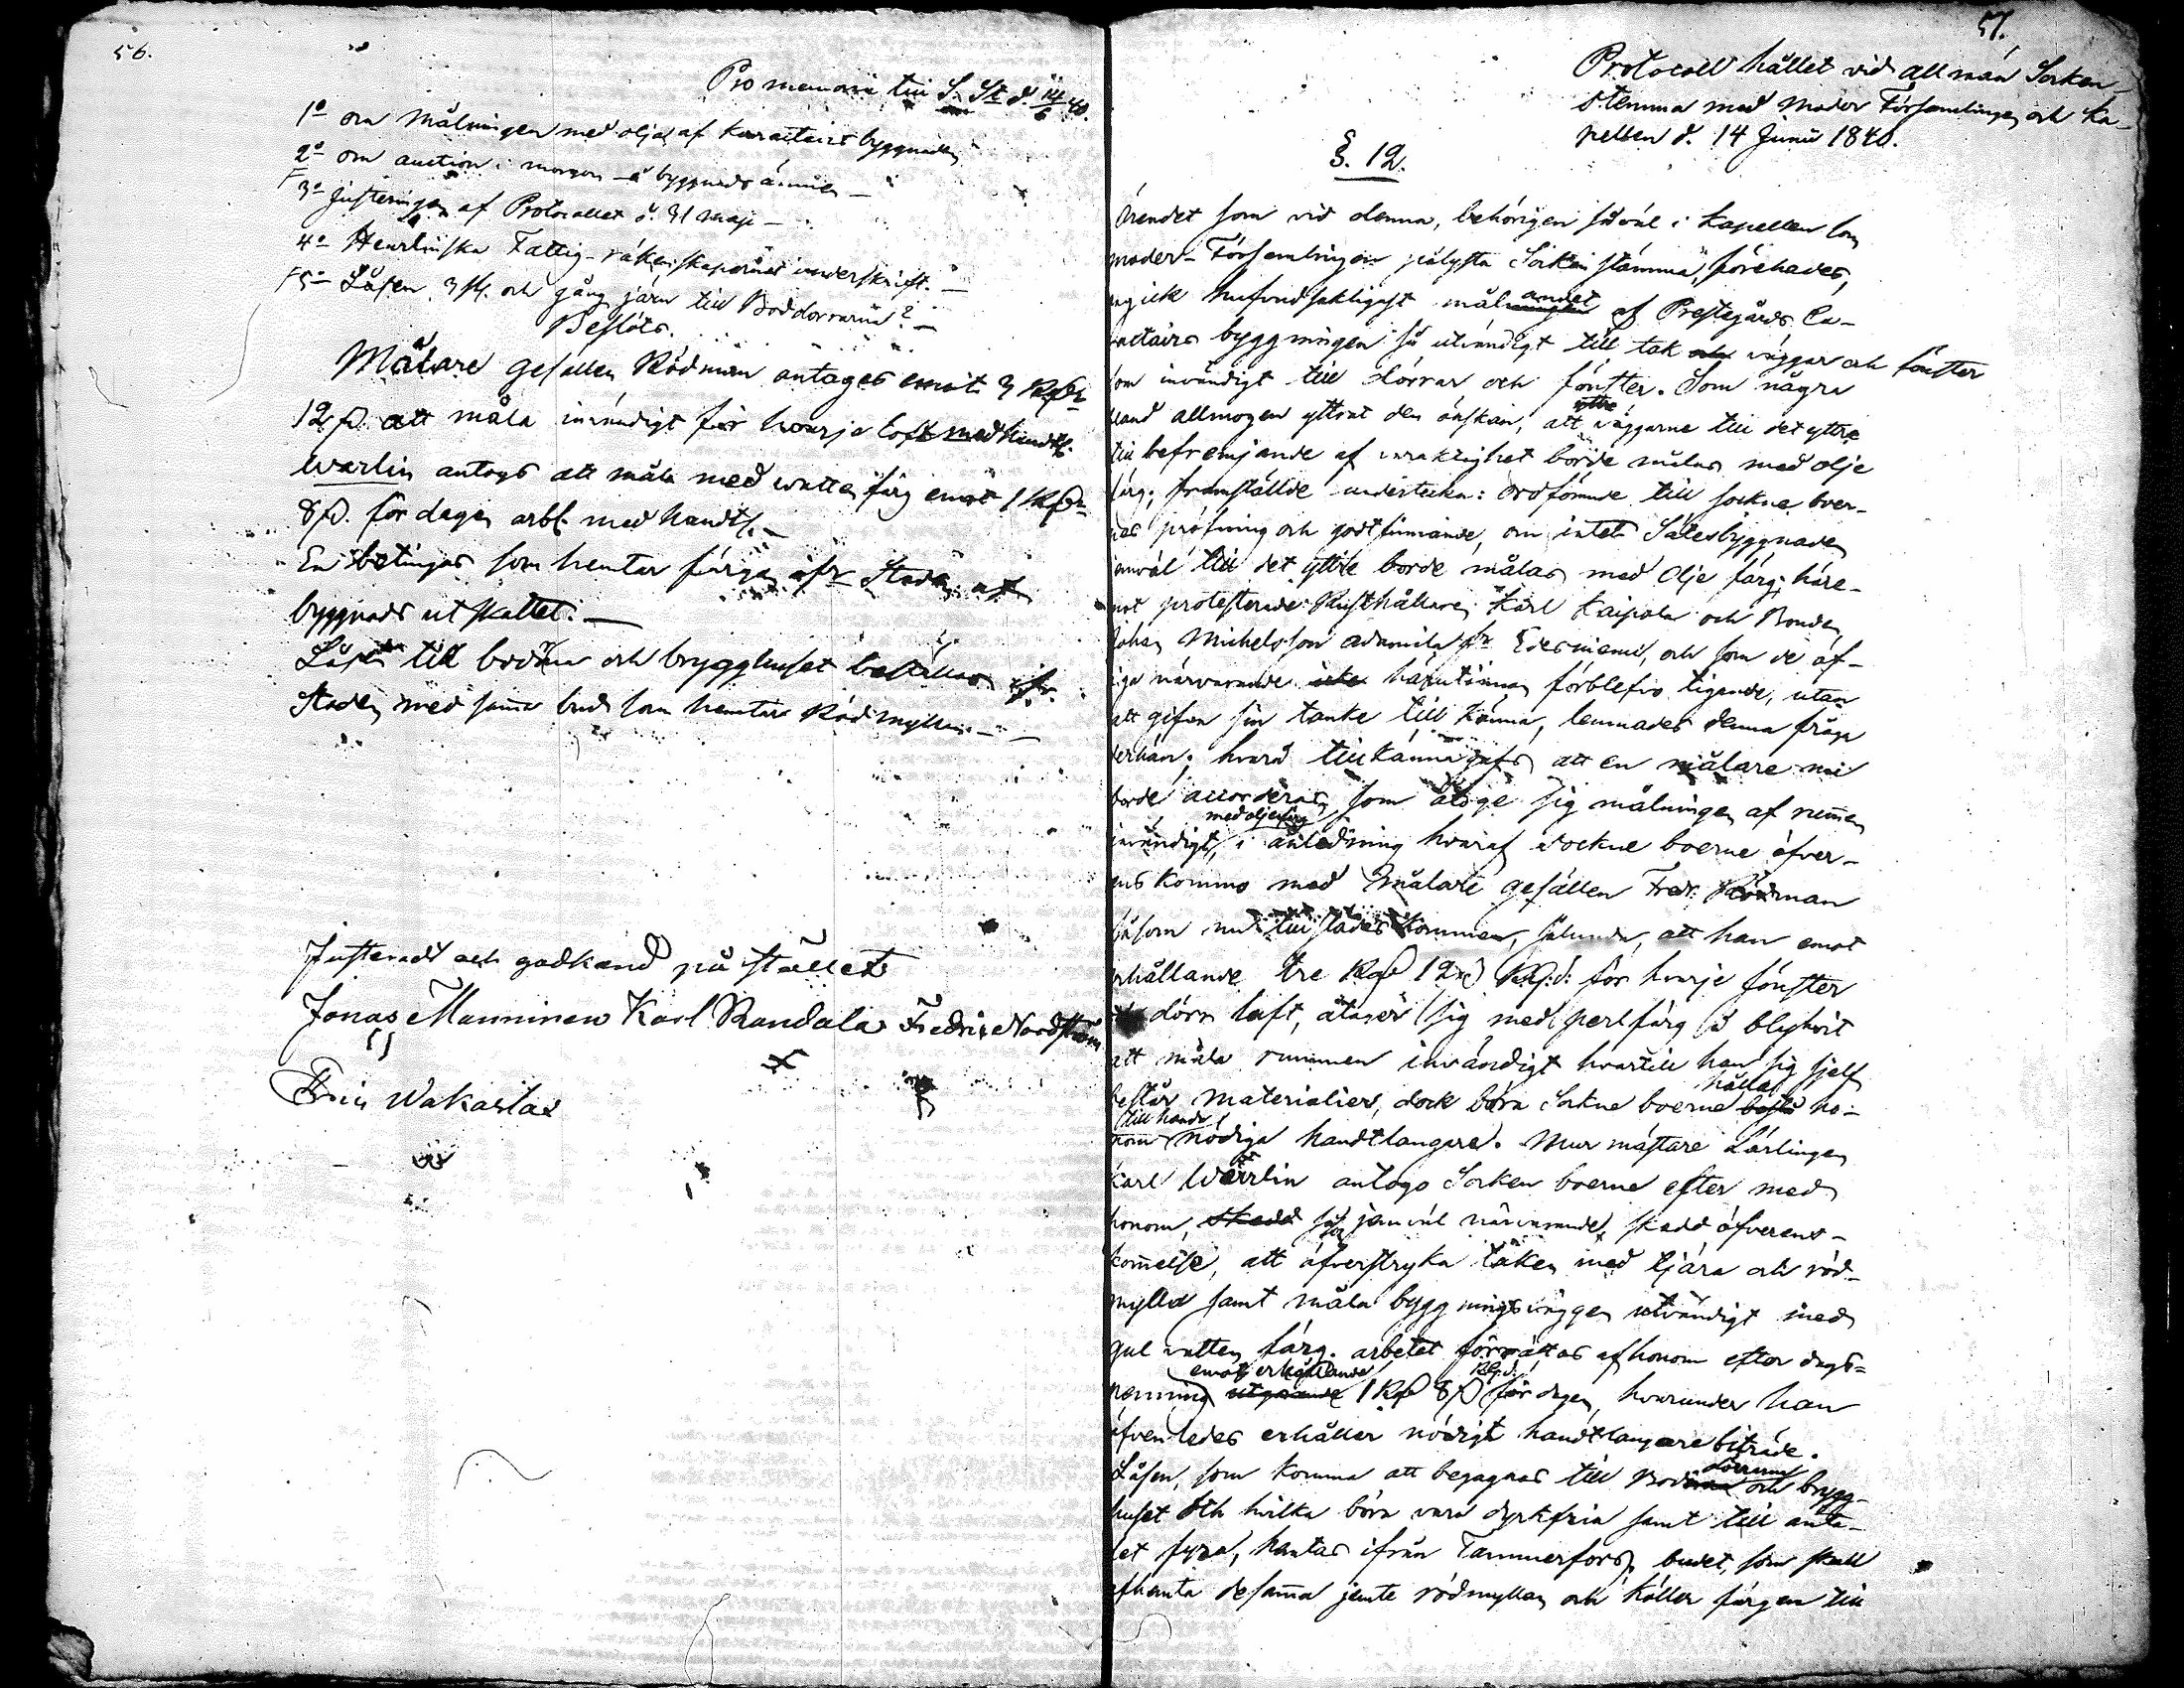 56.
Pro memoria till S. St d. 14/6 40.
1o om målningen med olja af karactairs byggnaden
2o om auction i morgon å byggnads ämnen —
3o Justeringen af Protocollet d. 31 maji —
4o Heurlinska Fattig-räkenskapernas underskrift. —
5o Låsen 3 st. och gång järn till Boddörrarna? —
Beslöts.
Målare gesällen Rödman antages emot 3 Rub
12 p. att måla invändigt för hvarje loft med handtl.
Warlin antogs att måla med watten färg emot 1 Rub
8 p. för dagen arbt. med handtl. —
En betingas som hemtar färgen ifr Staden af
byggnads utskottet. —
Låsen till bodarna och brygghuset beställas ifr.
Staden med samma bud som hemtar Rödmyllan. —
Justeradt och godkänd på stället
Jonas Manninen Karl Randala Fredric Nordström
Eric Wakarlax
57.
Protocoll hållet vid allmän Socken-
stemma med Moder Församlingen och Ka-
pellen d. 14 Junii 1840.
§. 12.
Ärendet som vid denna, behörigen såväl i Kapellen som
moder-Församlingen pålysta Sockenstämma, förehades,
angick hufvudsakligast målandet af Prestegårds Ca-
ractairs byggningen så utvändigt till tak väggar och fönster
som invändigt till dörrar och fönster. Som några
bland allmogen yttrat den önskan, att yttre väggarne till det yttre
till befremjande af varaktighet borde målas med olje
färg; framställde undertecknad: ordförande till sockne boer-
nas pröfning och godtfinnande, om intet Sätesbyggnaden
jemväl till det yttre borde målas med Olje färg; häre-
mot protesterade Rusthållaren Karl Kaipola och Bonden
Johan Michelsson Adamila fr Edesniemi, och som de öf-
riga närvarande härutinnan förblefvo tigande, utan
att gifva sin tanke till känna, lemnades denna fråga
derhän; hvard tillkännagafs att en målare nu
borde accorderas, som åtoge sig målningen af rummen
invändigt med oljefärg, i anledning hvaraf Sockne boerne öfver-
ens kommo med Målare gesällen Fredr: Rödman
såsom nu tillstädes kommen, sålunda, att han emot
erhållande tre Rub 12 p Rgs: för hvarje fönster
och dörr luft, åtager sig med perlfärg i blyhvit
att måla rummen invändigt hvartill han sig sjelf
består Materialier, dock böra Sockne boerne hålla ho-
nom till hands nödiga handtlangare. Mur mästare Lärlingen
Karl Wärrlin antogo Socken boerne efter med
honom, såsom jemväl närvarande, skedd öfverens-
kommelse, att öfverstryka taken med tjära och röd-
mylla samt måla byggnings väggen utvändigt med
gul watten färg. arbetet förrättas af honom efter dags-
penning emot erhållande 1 Rub 8 p Rgs: för dagen, hvarunder han
äfvenledes erhåller nödigt handtlangare biträde.
Låsen, som komma att begagnas till Bod dörrarne och brygg-
huset och hvilka böra vara dyrkfria samt till anta-
let fyra, hemtas ifrån Tammerfors, budet, som skall
afhemta desamma jemte rödmyllan och håller färgen till